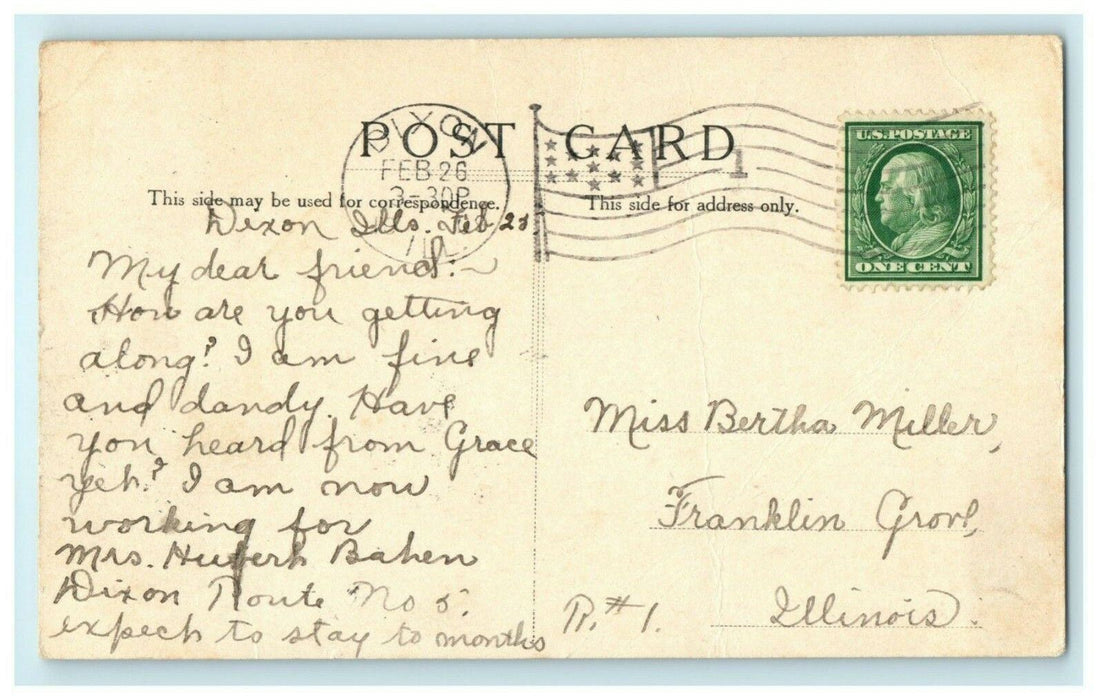 POST CARD
This side may be used for correspondence.
This side for address only.
DIXON
FEB 26
3-30P
ILL.
1
U.S. POSTAGE
ONE CENT
Dixon Ills. Feb 25
My dear friend:~
How are you getting
along? I am fine
and dandy. Have
you heard from Grace
yet? I am now
working for
Mrs. Hubert Bahen
Dixon Route No 5.
expect to stay to months
Miss Bertha Miller,
Franklin Grove,
R.#1. Illinois.